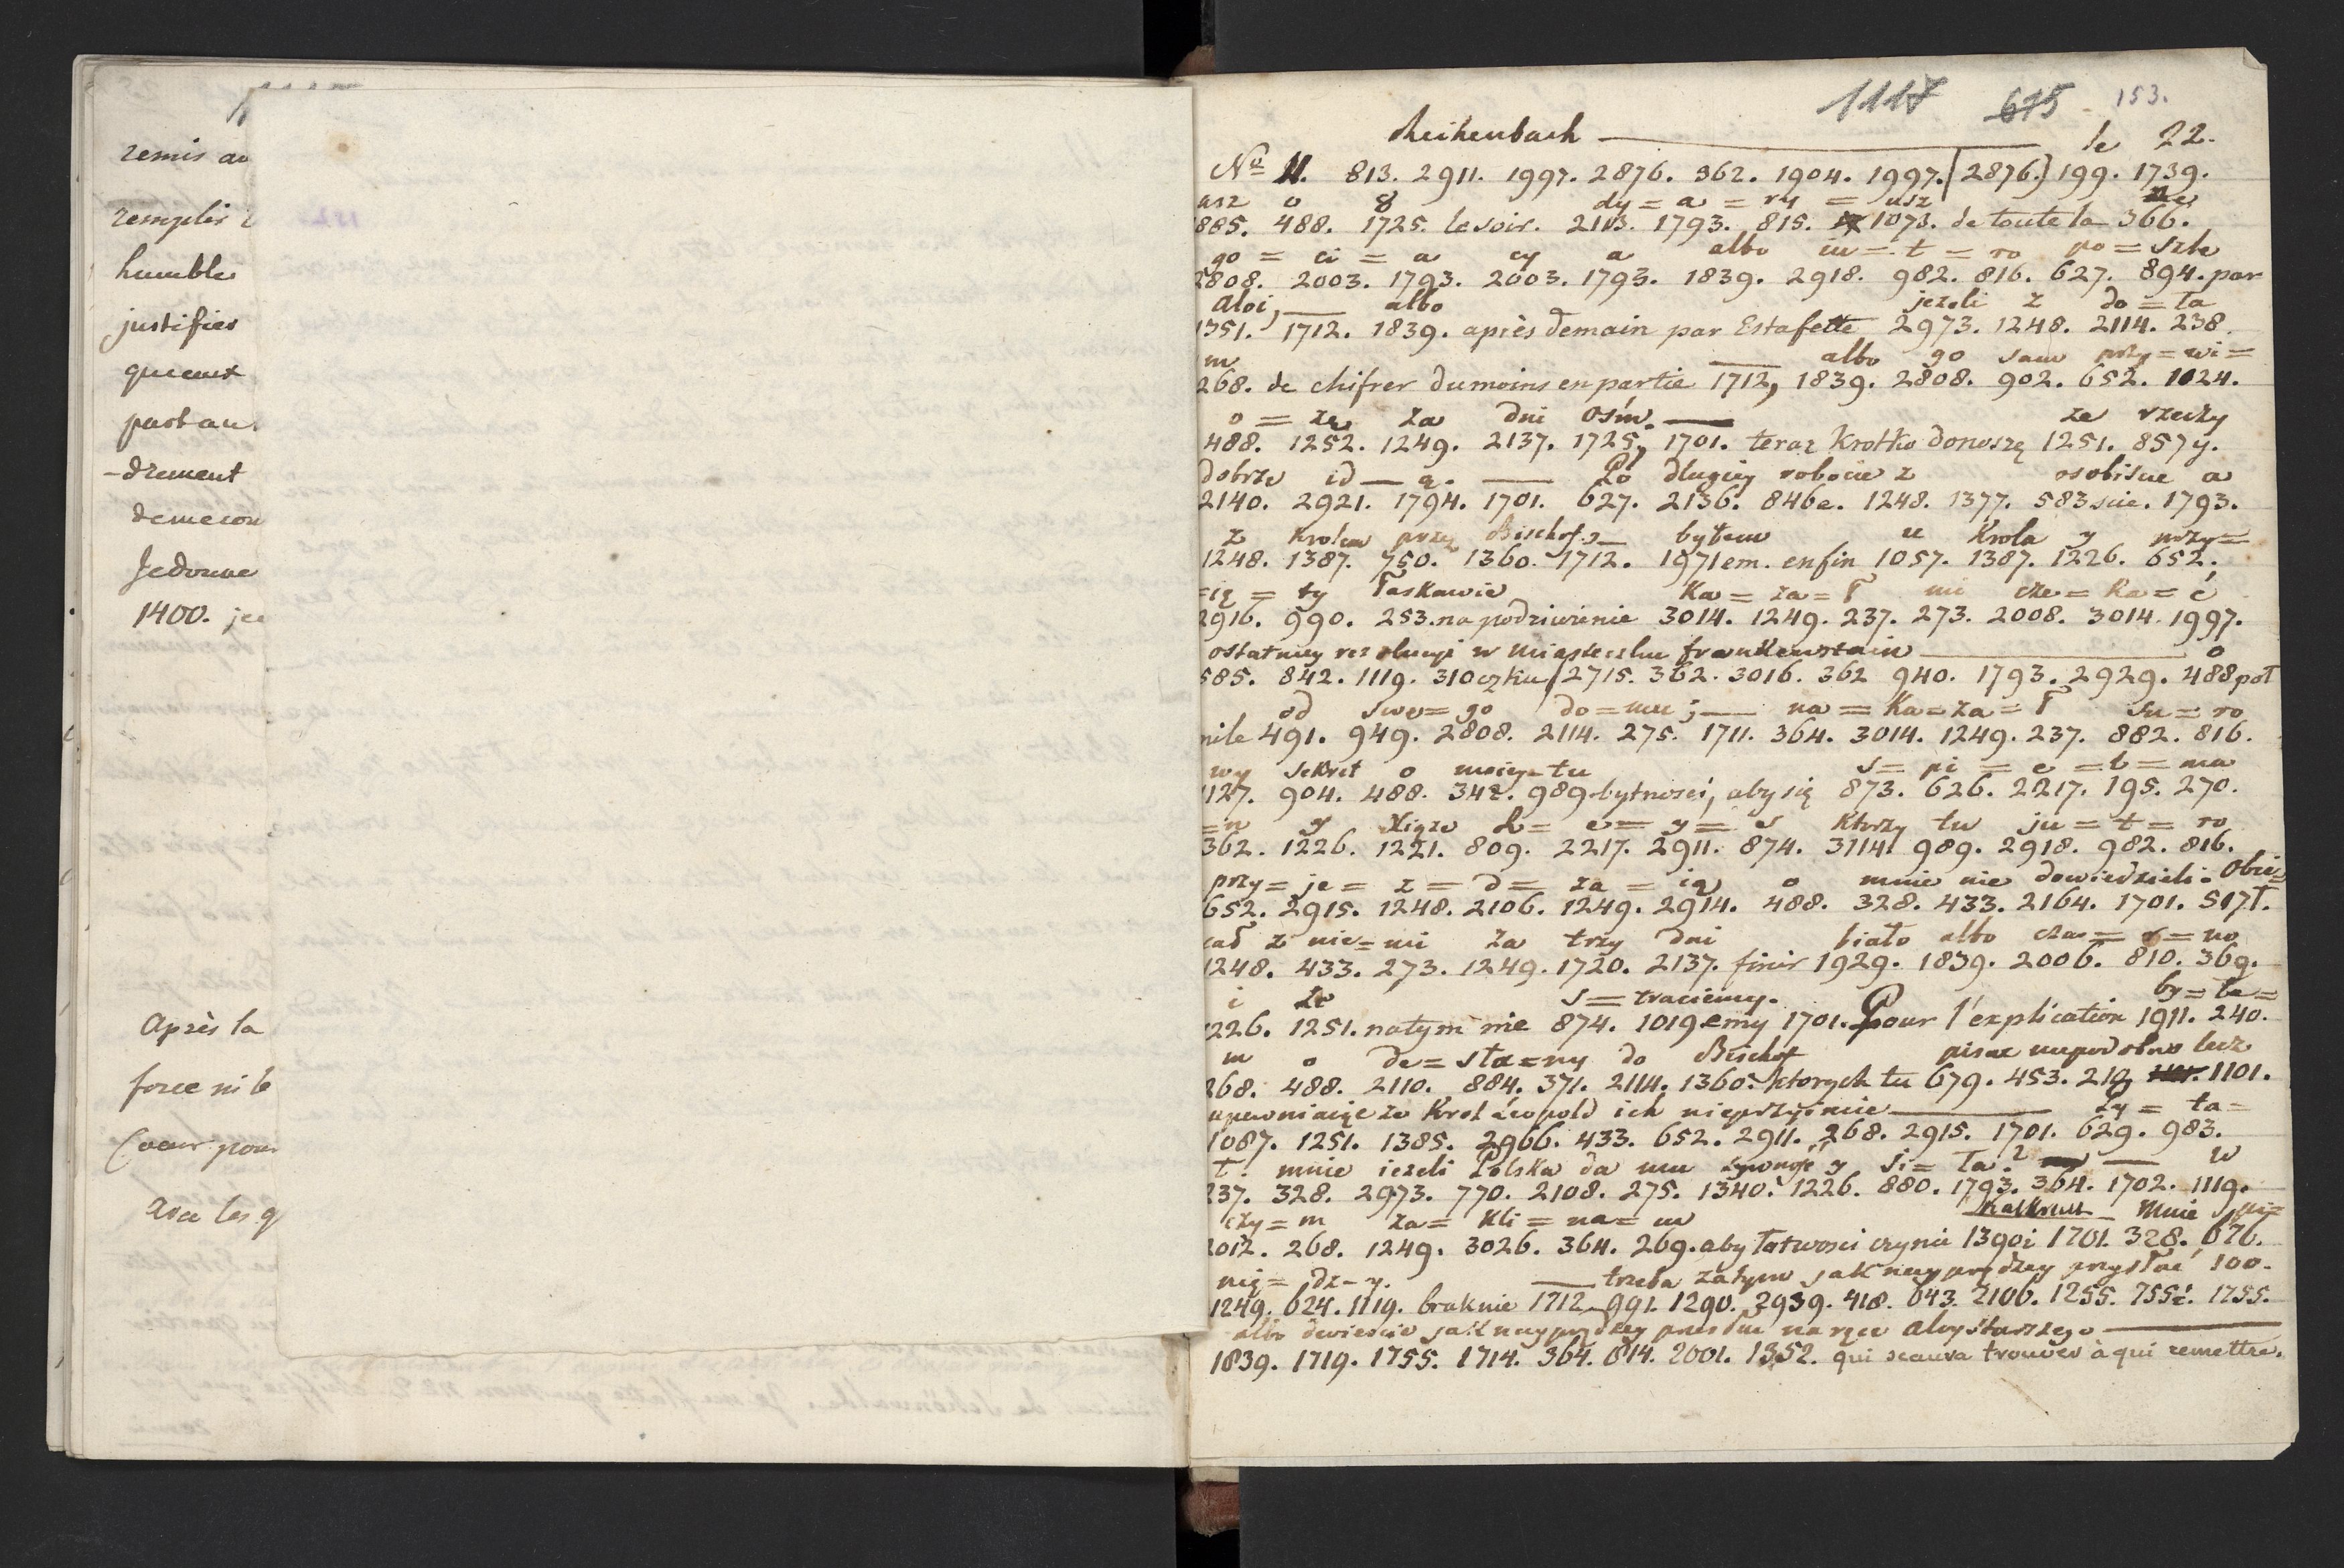 remis au
remplir
humble
justifier
qu'eux
part au
-drement
demeeon
Je donne
1400. je
Après la
force ni le
Coeur pour
Avec les
1117 615 153.
Reichenbach le 22.
No 11. 813. 2911. 1997. 2876. 362. 1904. 1997. (2876.) 199. 1739.
asz o 8 dy = a = ry = usz
885. 488. 1725. le soir. 2113. 1793. 815. 1073. de toute la 366.
go = ci = a cy a albo iu = t = ro po = szle
2808. 2003. 1793. 2003. 1793. 1839. 2918. 982. 816. 627. 894. par
Aloi, albo jezeli z do = ła
1351. 1712. 1839. après demain par Estafette 2973. 1248. 2114. 238.
m albo go sam przy = wi =
268. de chifrer du moins en partie 1712, 1839. 2808. 902. 652. 1024.
o = zę za dni ośm. ze rzeczy
488. 1252. 1249. 2137. 1725, 1701. teraz krotko donoszę 1251. 857y.
dobrze id — ą. Po długiey robocie z osobiscie a
2140. 2921. 1794. 1701. 627. 2136. 846e. 1248. 1377. 583 scie. 1793.
z krolem przez Bischof. byłem u Krola y przy =
1248. 1387. 750. 1360. 1712. 1971em. enfin 1057. 1387. 1226. 652.
= ię = ty łaskawie Ka = za = ł mi cze = ka = ć
2916. 990. 253. na podziwienie 3014. 1249. 237. 273. 2008. 3014. 1997.
ostatniey rezolucyi w Miasteczku frankenstain o
585. 842. 1119. 310czku 2715. 362. 3016. 362 940. 1793. 2929. 488 poł
od swe = go do = mu ; na = Ka = za = ł su = ro
mile 491. 949. 2808. 2114. 275. 1711. 364. 3014. 1249. 237. 882. 816.
wy sekret o moiey tu s = pi = e = l = ma
1127. 904. 488. 342. 989 bytnosci, aby się 873. 626. 2217. 195. 270.
= n y Xiąze R = e = y = s ktorzy tu ju = t = ro
362. 1226. 1221. 809. 2217. 2911. 874. 3114. 989. 2918. 982. 816.
przy = je = z = d = za = ią o mnie nie dowiedzieli. Obie =
652. 2915. 1248. 2106. 1249. 2914. 488. 328. 433. 2164. 1701. 517ł.
cał z nie = mi za trzy dni biało albo czar = r = no
1248. 433. 273. 1249. 1720. 2137. finir 1929. 1839. 2006. 810. 369.
i ze s = traciemy. by = łe =
1226. 1251. na tym nie 874. 1019emy 1701. Pour l'explication 1911. 240.
m o de = sła = ny do Bischof pisac niepodobno lecz
268. 488. 2110. 884. 371. 2114. 1360. ktorych tu 679. 453. 219 1101.
upewniaią ze Krol Leopold ich nieprzyimie py = ta =
1087. 1251. 1385. 2966. 433. 652. 2911. 268. 2915. 1701. 629. 983.
ł. mnie iezeli Polska da mu zywność y si = ła? w
237. 328. 2973. 770. 2108. 275. 1340. 1226. 880. 1793. 364. 1702. 1119.
czy = m za = kli = na = m Kalkreut Mnie
2012. 268. 1249. 3026. 364. 269. aby łatwosci czynił 1390i 1701. 328. 676.
nię = dz - y. trzeba zatym jak nayprędzey przysłać 100.
1249. 624. 1119. braknie 1712. 991. 1290. 2939. 418. 643. 2106. 1255. 755ć. 1755.
albo dwiescie jak nayprędzey na ręce Aloy starszego
1839. 1719. 1755. 1714. 364. 814. 2001. 1352. qui scaura trouver à qui remettre.